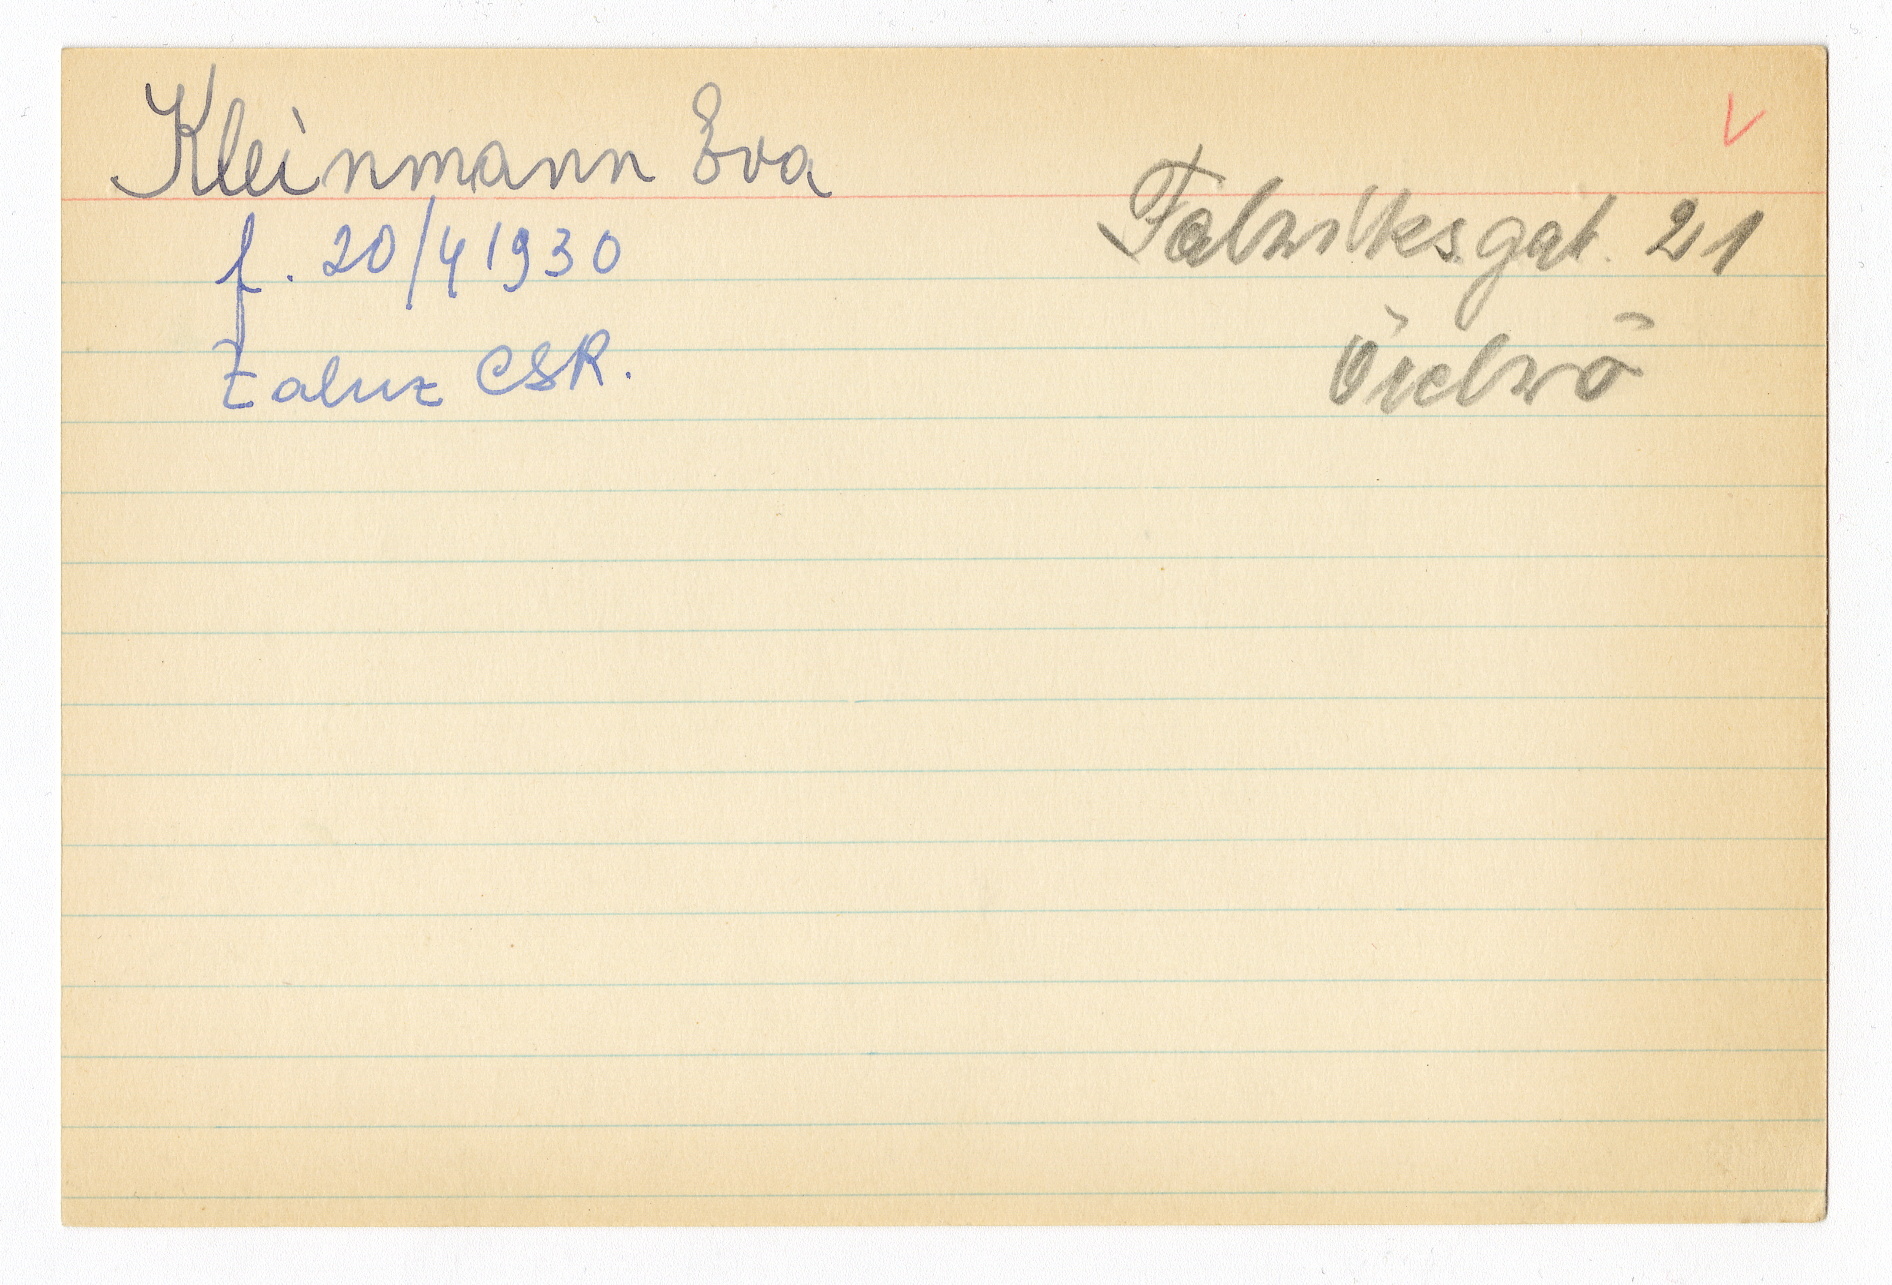 Kleinmann Eva
f. 20/4 1930
Zaluz CSR.
Fabriksgat. 21
Örebro